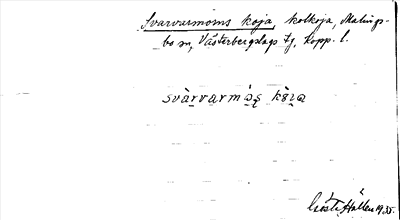 Svarvarmoms koja, kolkoja, Malings-
bo sn, Västerbergslags tg, Kopp. l.
svàrvarmɔ́s kɔ̀ja
Gösta Hallen 1935.